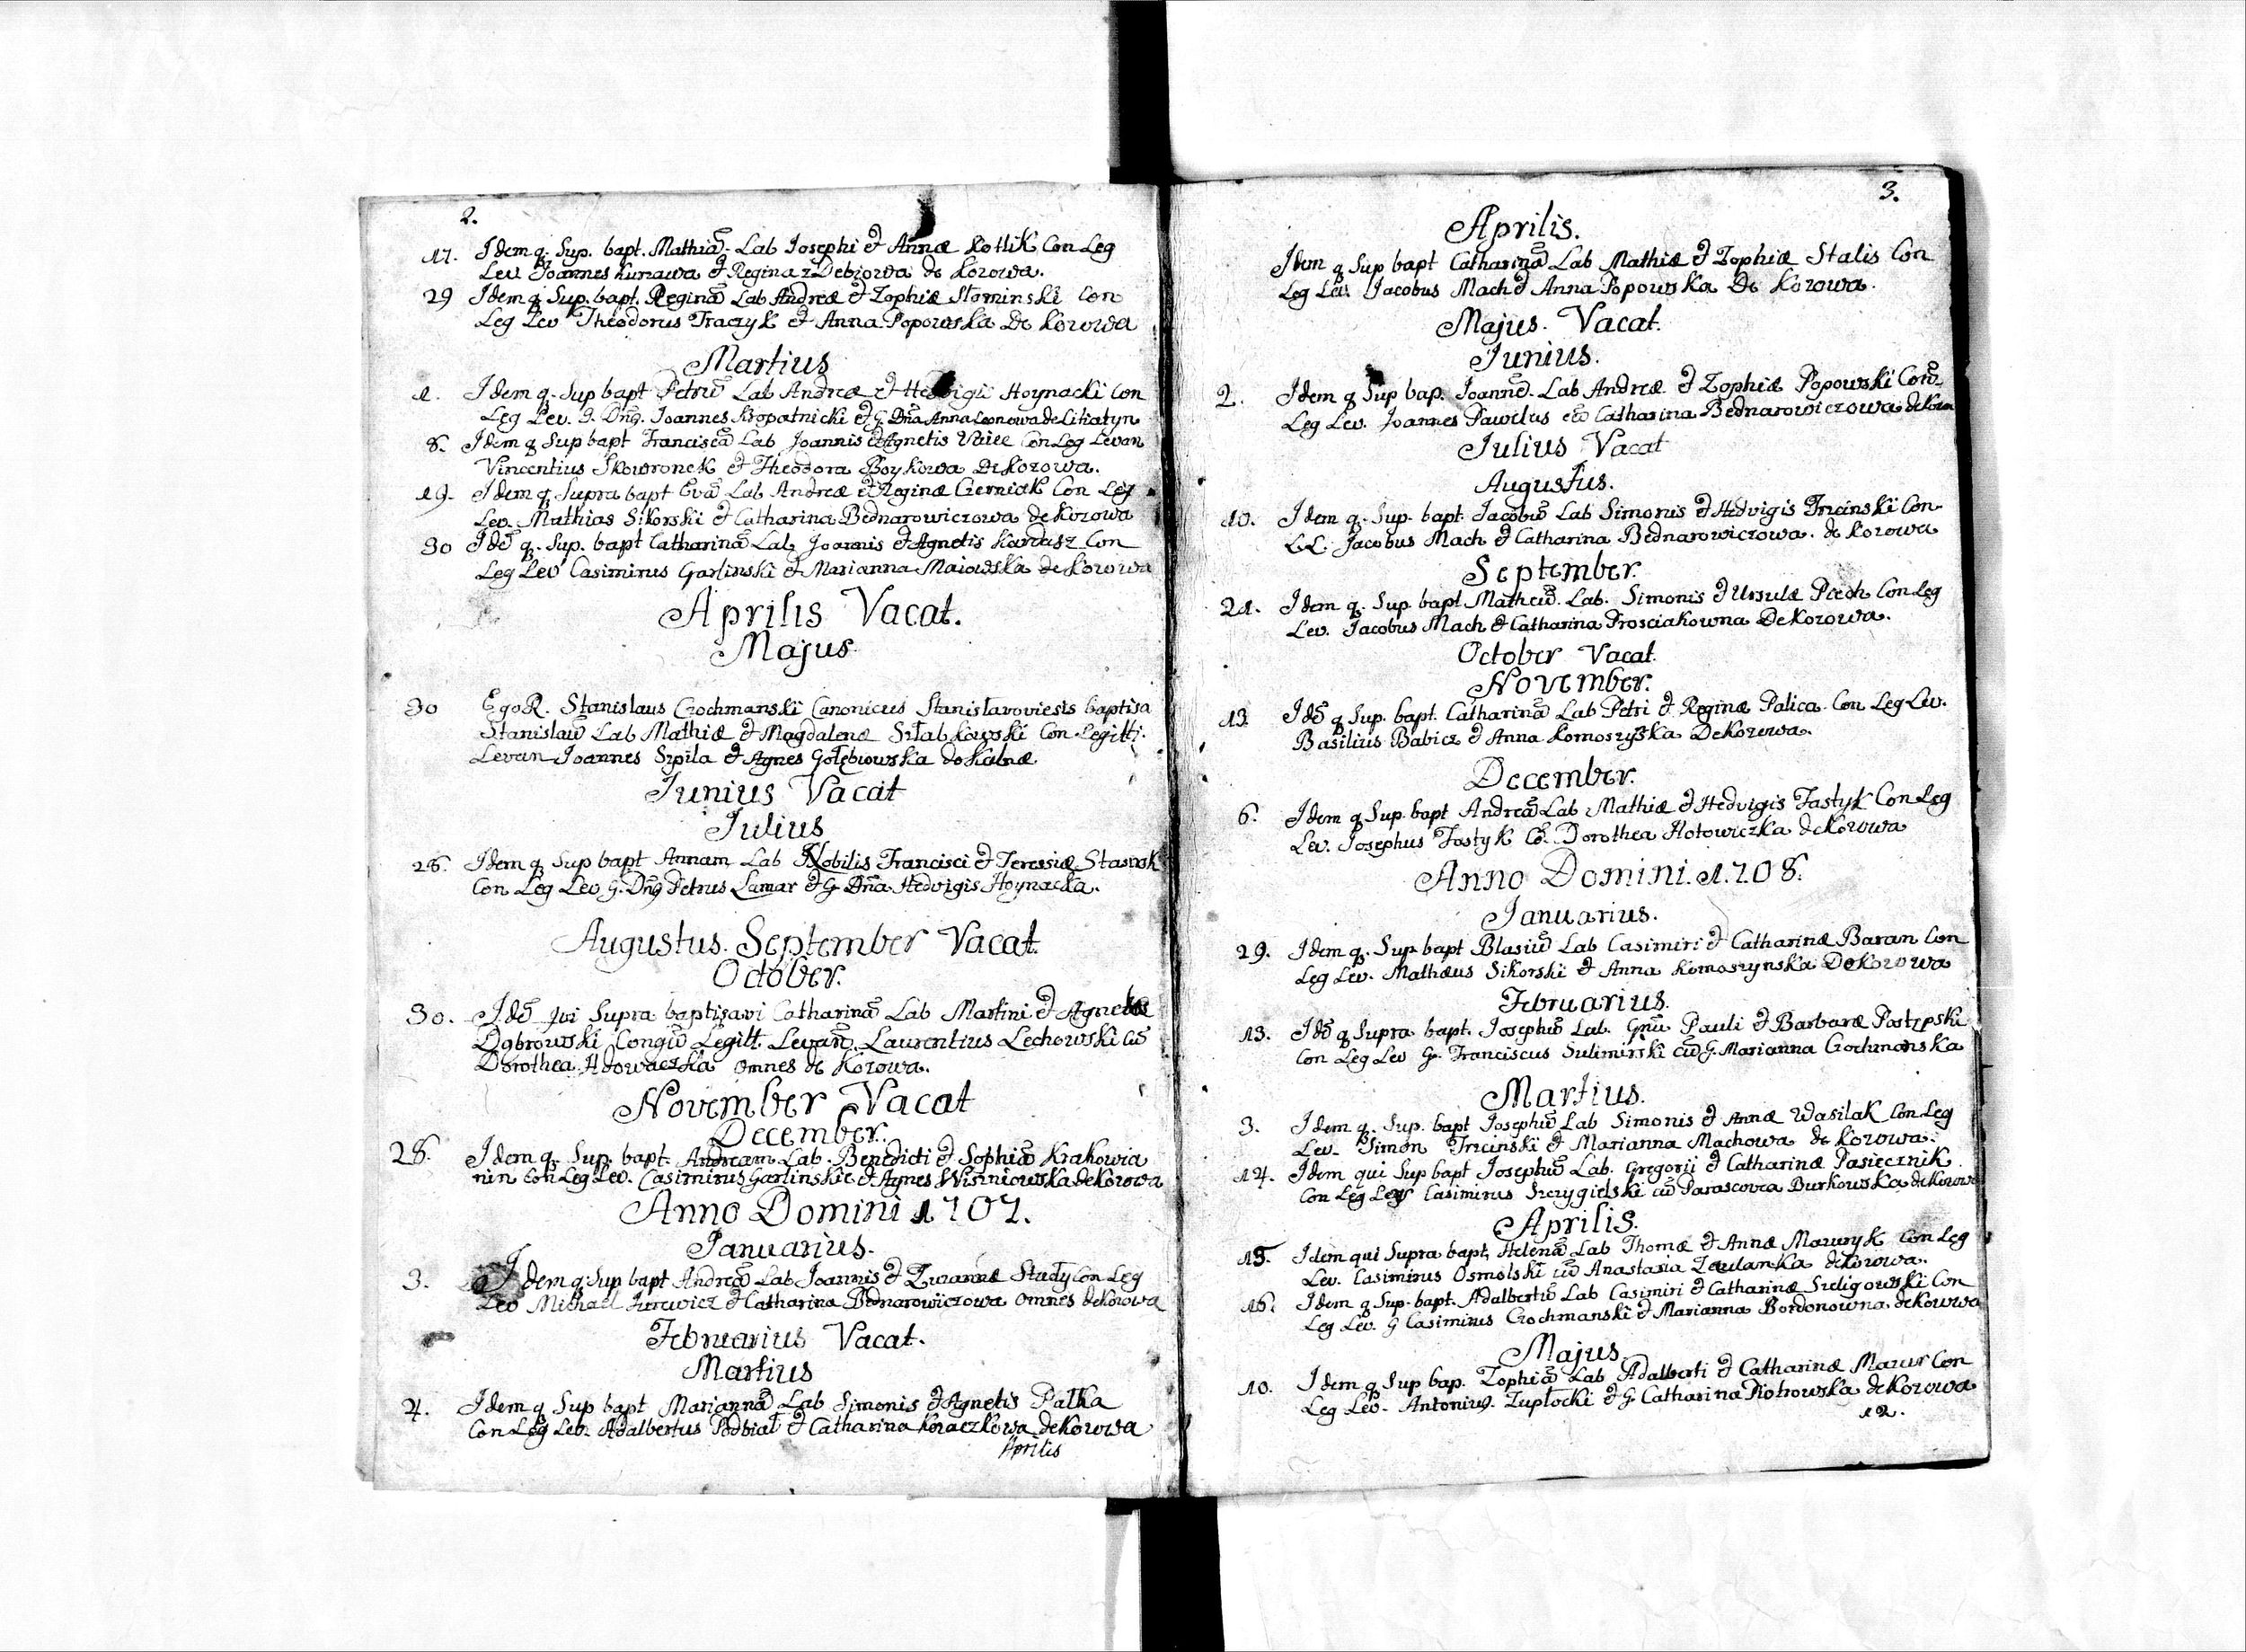 2.
17. Idem q. Sup. bapt. Mathiã. Lab Josephi et Annæ Kotlik Con Leg
Lev Joannes Kurzawa et Regina z Debiowa de Kozowa.
29 Idem q. Sup. bapt. Reginã Lab Andreæ et Zophiæ Słominski Con
Leg Lev Theodorus Traczyk et Anna Popowska De Kozowa
Martius
1. Idem q. Sup bapt Petrũ Lab Andreæ et Hedvigis Hoynacki Con
Leg Lev. G. Dñg. Joannes Kropatnicki et G. Dña Anna Leonowa de Litiatyn
8. Idem q Sup bapt Franciscã Lab Joannis et Agnetis Con Leg Levan
Vincentius Skowronek et Theodora Boykowa De Kozowa.
19. Idem q. Supra bapt Evã Lab Andreæ et Reginæ Czerniak Con Leg
Lev. Mathias Sikorski et Catharina Bednarowiczowa de Kozowa
30 Idẽ q. Sup. bapt Catharinã Lab Joannis et Agnetis Kardasz Con
Leg Lev Casimirus Garlinski et Marianna Maiowska de Kozowa
Aprilis Vacat.
Majus
30 Ego R. Stanislaus Czochmanski Canonicus Stanislavoviesis baptisa
Stanislaũ Lab Mathiæ et Magdalenæ Szlabkowski Con Legitti.
Levan Joannes Szpila et Agnes Gołębiowska de Kalnæ.
Junius Vacat
Julius
28. Idem q Sup bapt Annam Lab Nobilis Francisci et Teressiæ Stasinsk
Con Leg Lev G. Dñg Petrus Lamar et G. Dña Hedvigis Hoynacka.
Augustus. September Vacat
October.
30. Idẽ qui Supra baptisavi Catharinã Lab Martini et Agnetis
Dąbrowski Congũ Legitt. Levan̄. Laurentius Lechowski cũ
Dorothea Hdowaczka omnes de Kozowa.
November Vacat
December.
28. Idem q. Sup. bapt. Andream Lab. Benedicti et Sophiæ Krakowia
nin Con Leg Lev. Casimirus Garlinskie et Agnes Wisniowska de Kozowa
Anno Domini 1707.
Januarius.
3. Idem q. Sup bapt Andreã Lab Joannis et Zuzannæ Studÿ Con Leg
Lev Michael Jurewicz et Catharina Bednarowiczowa omnes de Kozowa
Februarius Vacat.
Martius
4. Idem q Sup bapt Mariannã Lab Simonis et Agnetis Pałka
Con Leg Lev. Adalbertus Podbiał et Catharina Koraczkowa de Kozowa
Aprilis
3.
Aprilis.
Idem q Sup bapt Catharinã Lab Mathiæ et Zophiæ Stalis Con
Leg Lev. Jacobus Mach et Anna Popowska De Kozowa.
Majus. Vacat.
Junius.
2. Idem q Sup bap. Joannẽ. Lab Andreæ et Zophiæ Popowski Con
Leg Lev. Joannes Pawelus Catharina Bednarowiczowa de Kozo
Julius Vacat
Augustus.
10. Idem q. Sup. bapt. Jacobũ Lab Simonis et Hedvigis Trzcinski Con
L.L. Jacobus Mach et Catharina Bednarowiczowa. de Kozowa
September.
21. Idem q. Sup. bapt Matheũ. Lab. Simonis et Ursulæ Piech Con Leg
Lev. Jacobus Mach et Catharina Prosciakowna De Kozowa.
October Vacat.
November.
13. Idẽ q Sup. bapt. Catharinã Lab Petri et Reginæ Palica. Con Leg Lev.
Basilius Babicz et Anna Komoszyska De Kozowa.
December.
6. Idem q Sup bapt Andreã Lab Mathiæ et Hedvigis Fastyk Con Leg
Lev. Josephus Fastyk Cũ. Dorothea Hotowiczka de Kozowa
Anno Domini. 1.708.
Januarius.
29. Idem q. Sup. bapt Blasiũ Lab Casimiri et Catharinæ Baran Con
Leg Lev. Mathæus Sikorski et Anna Komoszynska De Kozowa
Februarius.
13. Idẽ q Supra bapt. Josephũ Lab. Gnũ Pauli et Barbaræ Postępski
Con Leg Lev G. Franciscus Sulimirski cũ G. Marianna Czochmanska
Martius.
3. Idem q. Sup. bapt Josephũ Lab Simonis et Annæ Wasilak Con Leg
Lev. Simon Trzcinski et Marianna Machowa de Kozowa.
14. Idem qui Sup bapt Josephũ Lab. Gregorij et Catharinæ Pasiecznik
Con Leg Lev Casimirus Szczygielski cũ Parascovea Burkowska de Kozow
Aprilis.
15. Idem qui Supra bapt. Helenã Lab Thomæ et Annæ Mazuryk Con Leg
Lev. Casimirus Osmolski cũ Anastasia Zaulanka de Kozowa.
16. Idem q Sup. bapt. Adalbertũ Lab Casimiri et Catharinæ Szeligowski Con
Leg Lev. G Casimirus Czochmanski et Marianna Bordonowna de Kozowa
Majus
10. Idem q Sup bap. Zophiã Lab Adalberti et Catharinæ Mazur Con
Leg Lev. Antonius Zupłocki et G. Catharina Piotrowska de Kozowa
12.